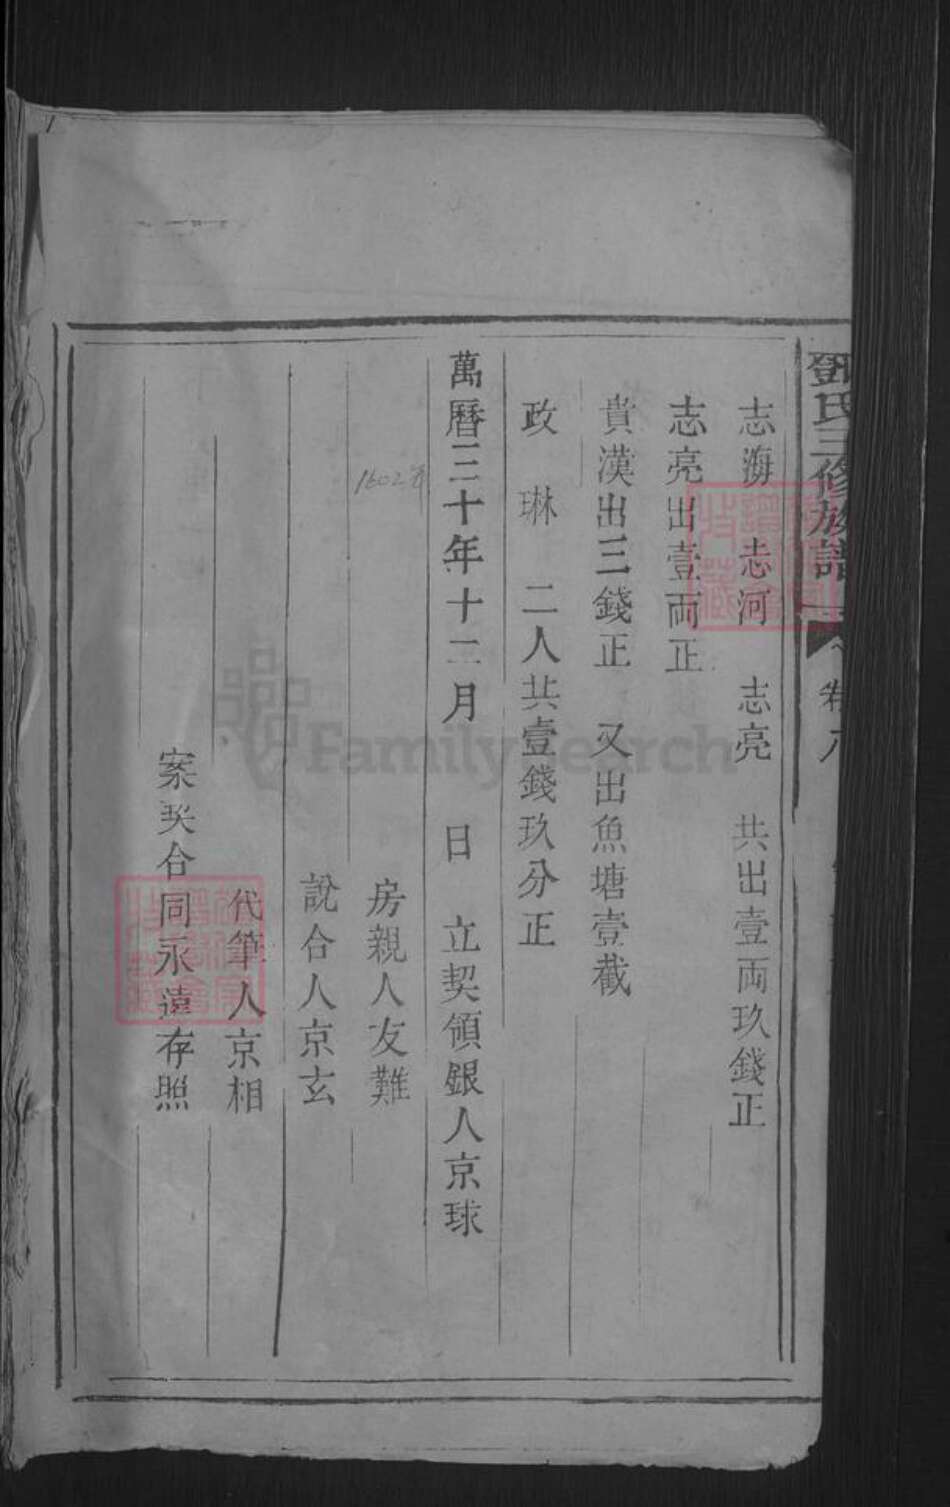 鄧氏三修族譜 卷八
志海 志河 志亮 共出壹両玖錢正
志亮出壹両正
貴漢出三錢正 又出魚塘壹截
政琳 二人共壹錢玖分正
萬曆三十年十二月 日 立契領銀人京球
1602年
房親人友難
說合人京玄
代筆人京相
案契合同永遠存照
FamilySearch